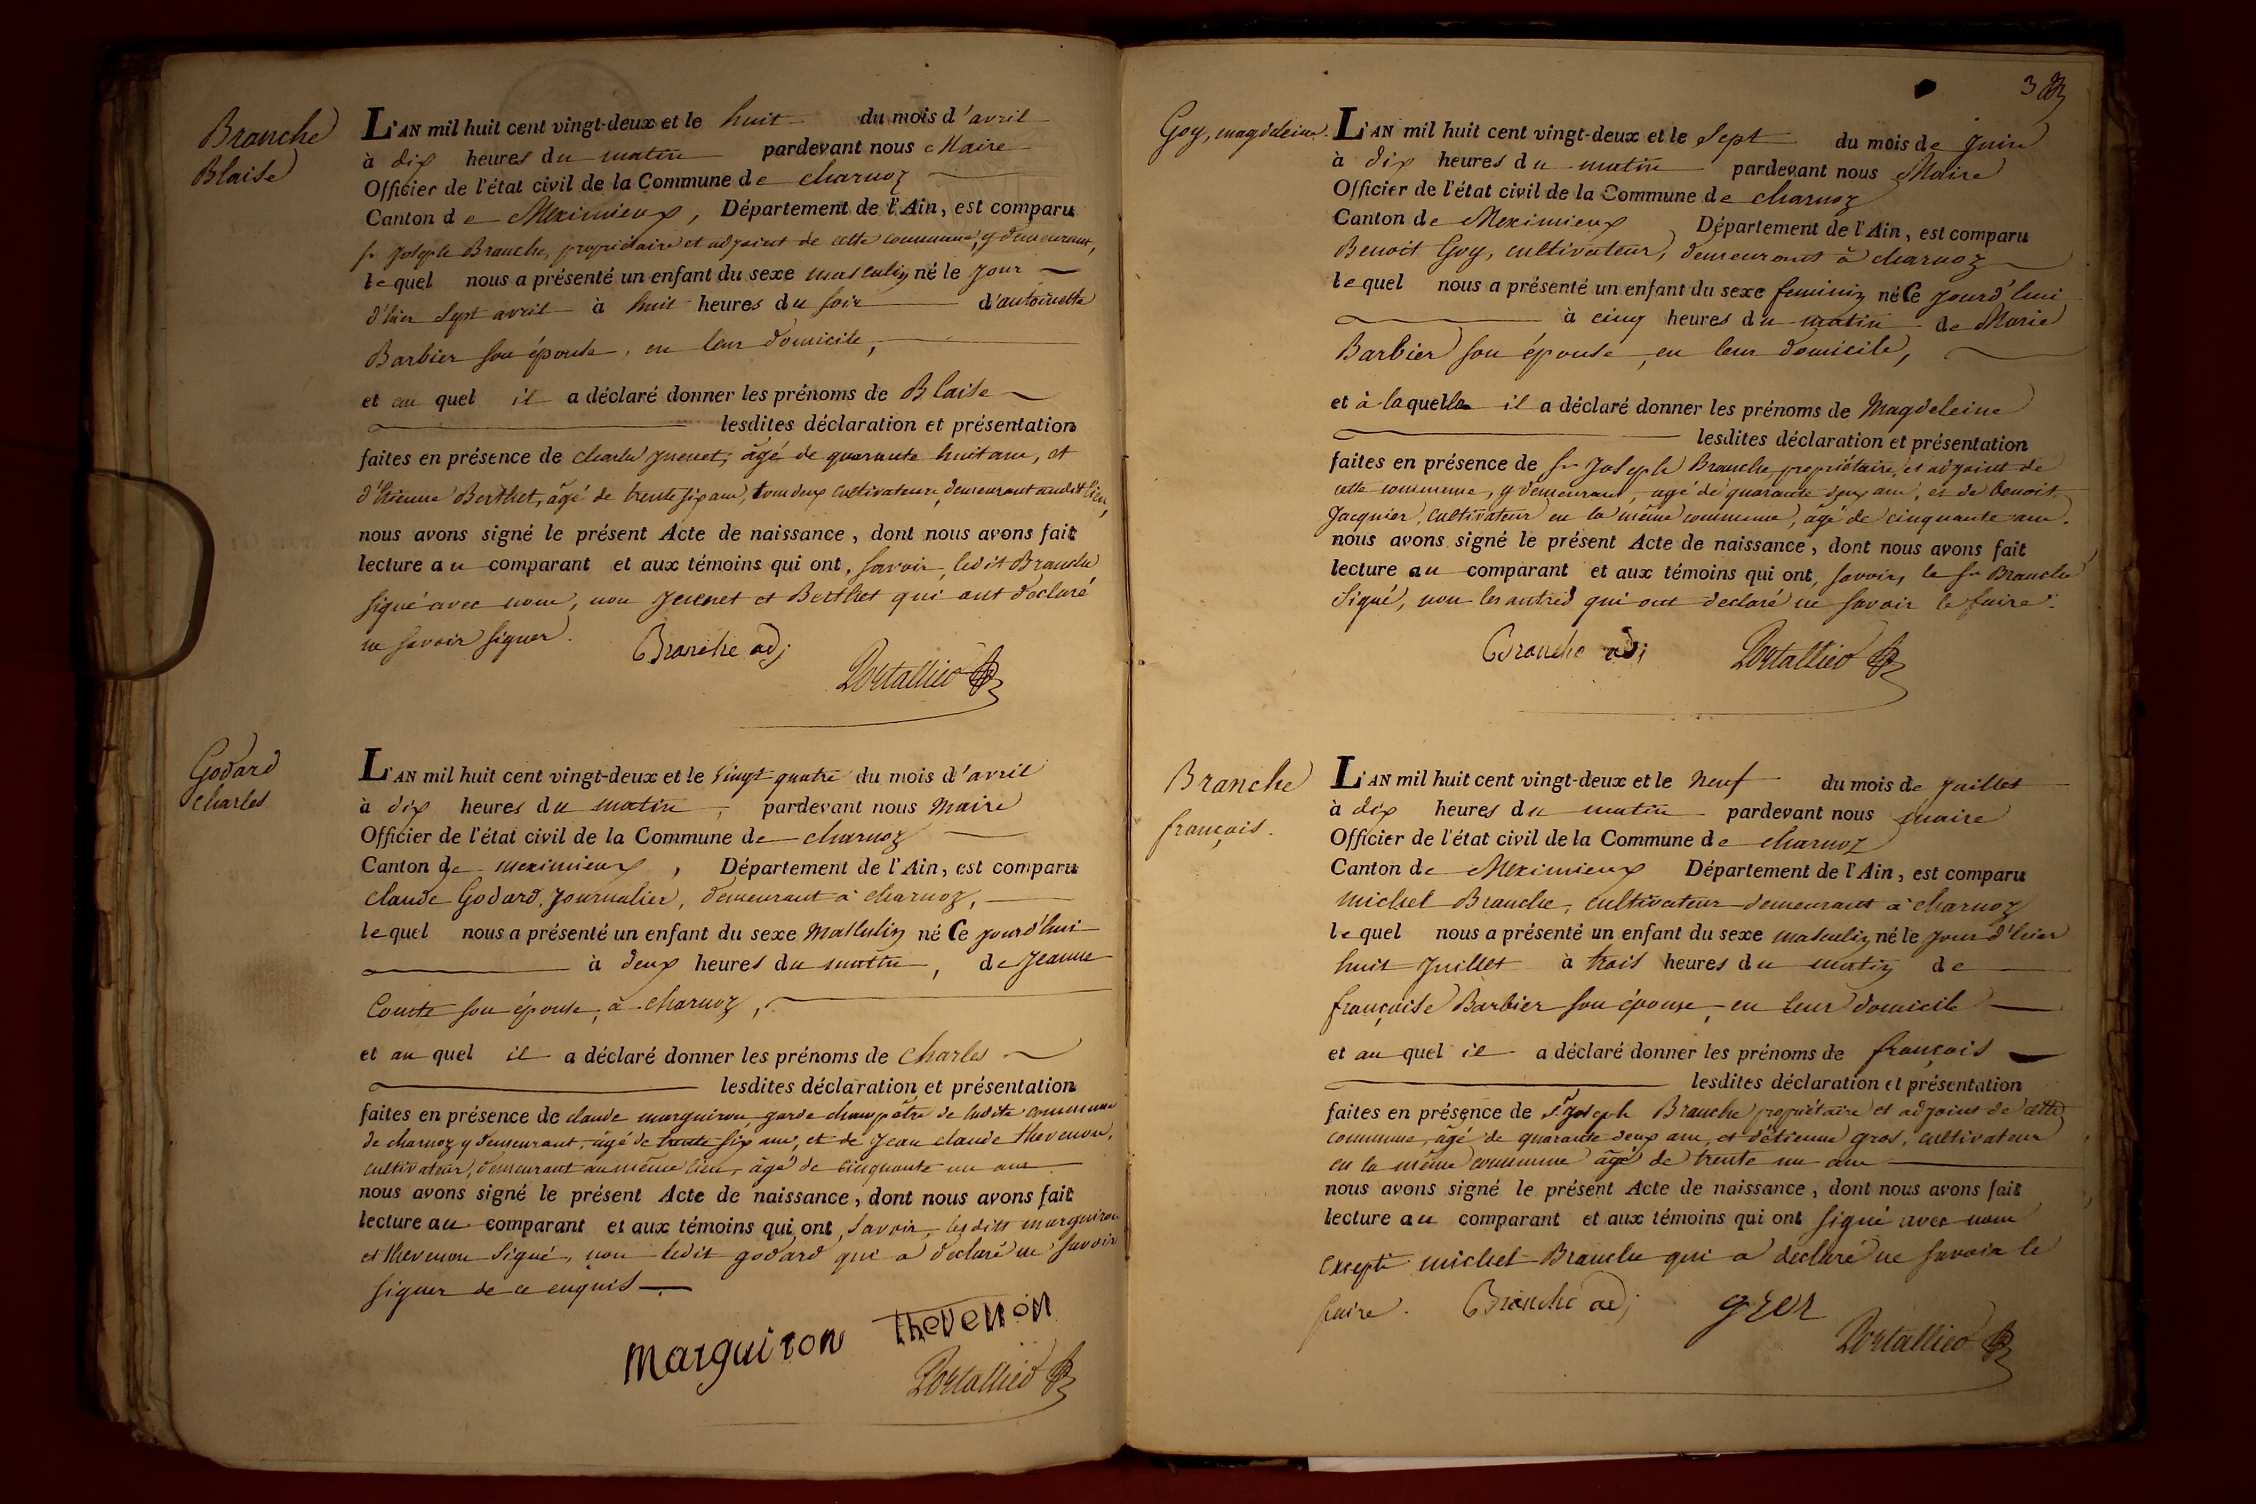 Branche
Blaise
L'AN mil huit cent vingt-deux et le huit du mois d'avril
à dix heures du matin pardevant nous Maire
Officier de l'état civil de la Commune de charnoz
Canton de Meximieux, Département de l'Ain, est comparu
sr. Joseph Branche, propriétaire et adjoint de cette commune, y demeurant,
lequel nous a présenté un enfant du sexe masculin né le jour
d'hier sept avril à huit heures du soir d'antoinette
Barbier son épouse, en leur domicile,
et au quel il a déclaré donner les prénoms de Blaise
lesdites déclaration et présentation
faites en présence de charles juenet, âgé de quarante huit ans, et
d'Etienne Berthet, âgé de trente six ans, tous deux cultivateurs, demeurant audit lieu,
nous avons signé le présent Acte de naissance, dont nous avons fait
lecture au comparant et aux témoins qui ont, savoir, ledit Branche
signé avec nous, non juenet et Berthet qui ont déclaré
ne savoir signer.
Branche adj
Portallier
Godard
charles
L'AN mil huit cent vingt-deux et le vingt quatre du mois d'avril
à dix heures du matin, pardevant nous Maire
Officier de l'état civil de la Commune de charnoz
Canton de meximieux, Département de l'Ain, est comparu
claude Godard, Journalier, demeurant à charnoz,
lequel nous a présenté un enfant du sexe Masculin né Ce jourd'hui
à deux heures du matin, de Jeanne
Comte son épouse, à charnoz,
et au quel il a déclaré donner les prénoms de Charles
lesdites déclaration et présentation
faites en présence de claude marguiron, garde champêtre de ladite commune
de charnoz y demeurant, âgé de trente six ans, et de Jean claude thevenon,
cultivateur, demeurant au même lieu, âgé de cinquante un ans
nous avons signé le présent Acte de naissance, dont nous avons fait
lecture au comparant et aux témoins qui ont, savoir, lesdits marguiron
et thevenon signé, non ledit godard qui a déclaré ne savoir
signer de ce enquis
marguiron thevenon
Portallier
3
Goy, magdeleine.
L'AN mil huit cent vingt-deux et le sept du mois de juin
à dix heures du matin pardevant nous Maire
Officier de l'état civil de la Commune de charnoz
Canton de Meximieux Département de l'Ain, est comparu
Benoit Goy, cultivateur, demeurant à charnoz
lequel nous a présenté un enfant du sexe feminin né Ce jourd'hui
à cinq heures du matin de Marie
Barbier son épouse, en leur domicile,
et à laquelle il a déclaré donner les prénoms de Magdeleine
lesdites déclaration et présentation
faites en présence de sr Joseph Branche propriétaire, et adjoint de
cette commune, y demeurant, agé de quarante deux ans, et de Benoit
Jacquier, cultivateur en la même commune, âgé de cinquante ans.
nous avons signé le présent Acte de naissance, dont nous avons fait
lecture au comparant et aux témoins qui ont, savoir, le sr Branche
signé, non les autres qui ont declaré ne savoir le faire.
Branche adj
Portallier
Branche
françois.
L'AN mil huit cent vingt-deux et le neuf du mois de juillet
à dix heures du matin pardevant nous maire
Officier de l'état civil de la Commune de charnoz
Canton de Meximieux Département de l'Ain, est comparu
michel Branche, cultivateur demeurant à charnoz
lequel nous a présenté un enfant du sexe masculin né le jour d'hier
huit juillet à trois heures du matin de
françoise Barbier son épouse, en leur domicile
et au quel il a déclaré donner les prénoms de françois
lesdites déclaration et présentation
faites en présence de sr Joseph Branche propriétaire et adjoint de cette
commune, âgé de quarante deux ans, et d'étienne gros, cultivateur
en la même commune âgé de trente un ans
nous avons signé le présent Acte de naissance, dont nous avons fait
lecture au comparant et aux témoins qui ont signé avec nous
excepté michel Branche qui a déclaré ne savoir le
faire. Branche adj gros
Portallier